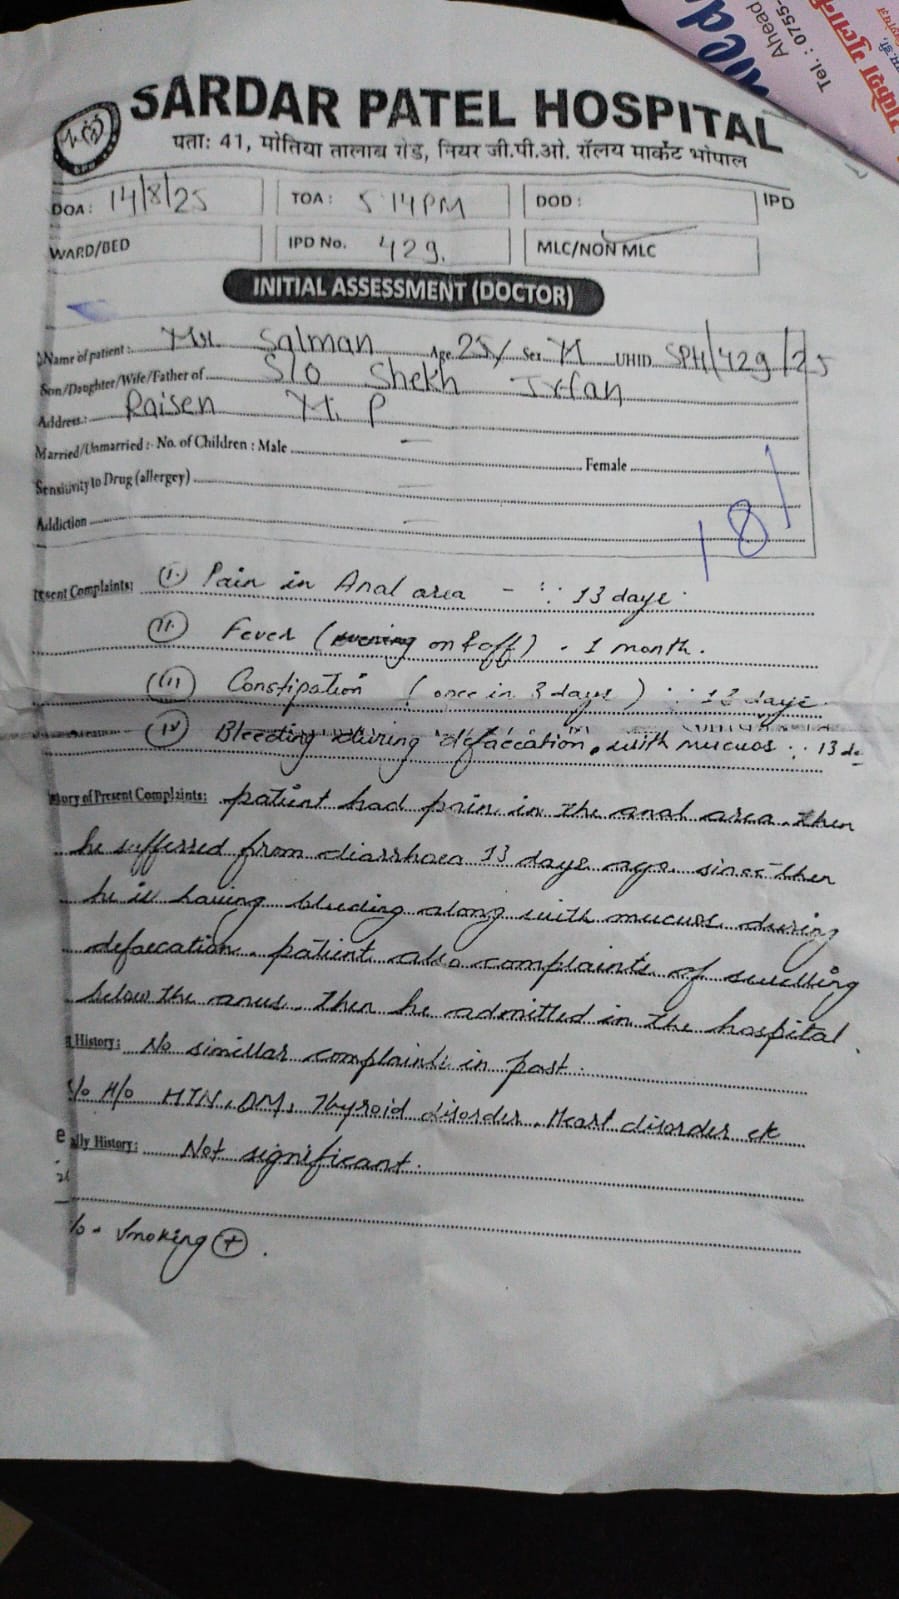 SARDAR PATEL HOSPITAL
पता: 41, मोतिया तालाब रोड, नियर जी.पी.ओ. रॉयल मार्केट भोपाल
DOA: 14/8/25 TOA: 5:14PM DOD: IPD
WARD/BED IPD No. 429. MLC/NON MLC
INITIAL ASSESSMENT (DOCTOR)
Name of patient: Mr. Salman Age 25/ Sex M UHID SPH/429/25
Son/Daughter/Wife/Father of S/o Shekh Irfan
Address: Raisen M.P
Married/Unmarried: No. of Children: Male – Female
Sensitivity to Drug (allergey) –
Addiction –
esent Complaints: (i.) Pain in Anal area - ∵ 13 days
(ii) Fever (evening on & off). 1 month.
(iii) Constipation (once in 3 days) ∵ 13 days.
(iv) Bleeding during defaecation, with mucuos ∵ 13 da
tory of Present Complaints: patient had pain in the anal area. then
he sufferred from diarrhoea 13 days ago. since then
he is having bleeding along with mucuos during
defaecation. patient also complaints of swelling
below the anus. then he admitted in the hospital.
History: No simillar complaints in past.
H/o HTN, DM, Thyroid disorder, Heart disorder etc
ily History: Not significant.
Smoking (+).
Ahead
Tel.: 0755-